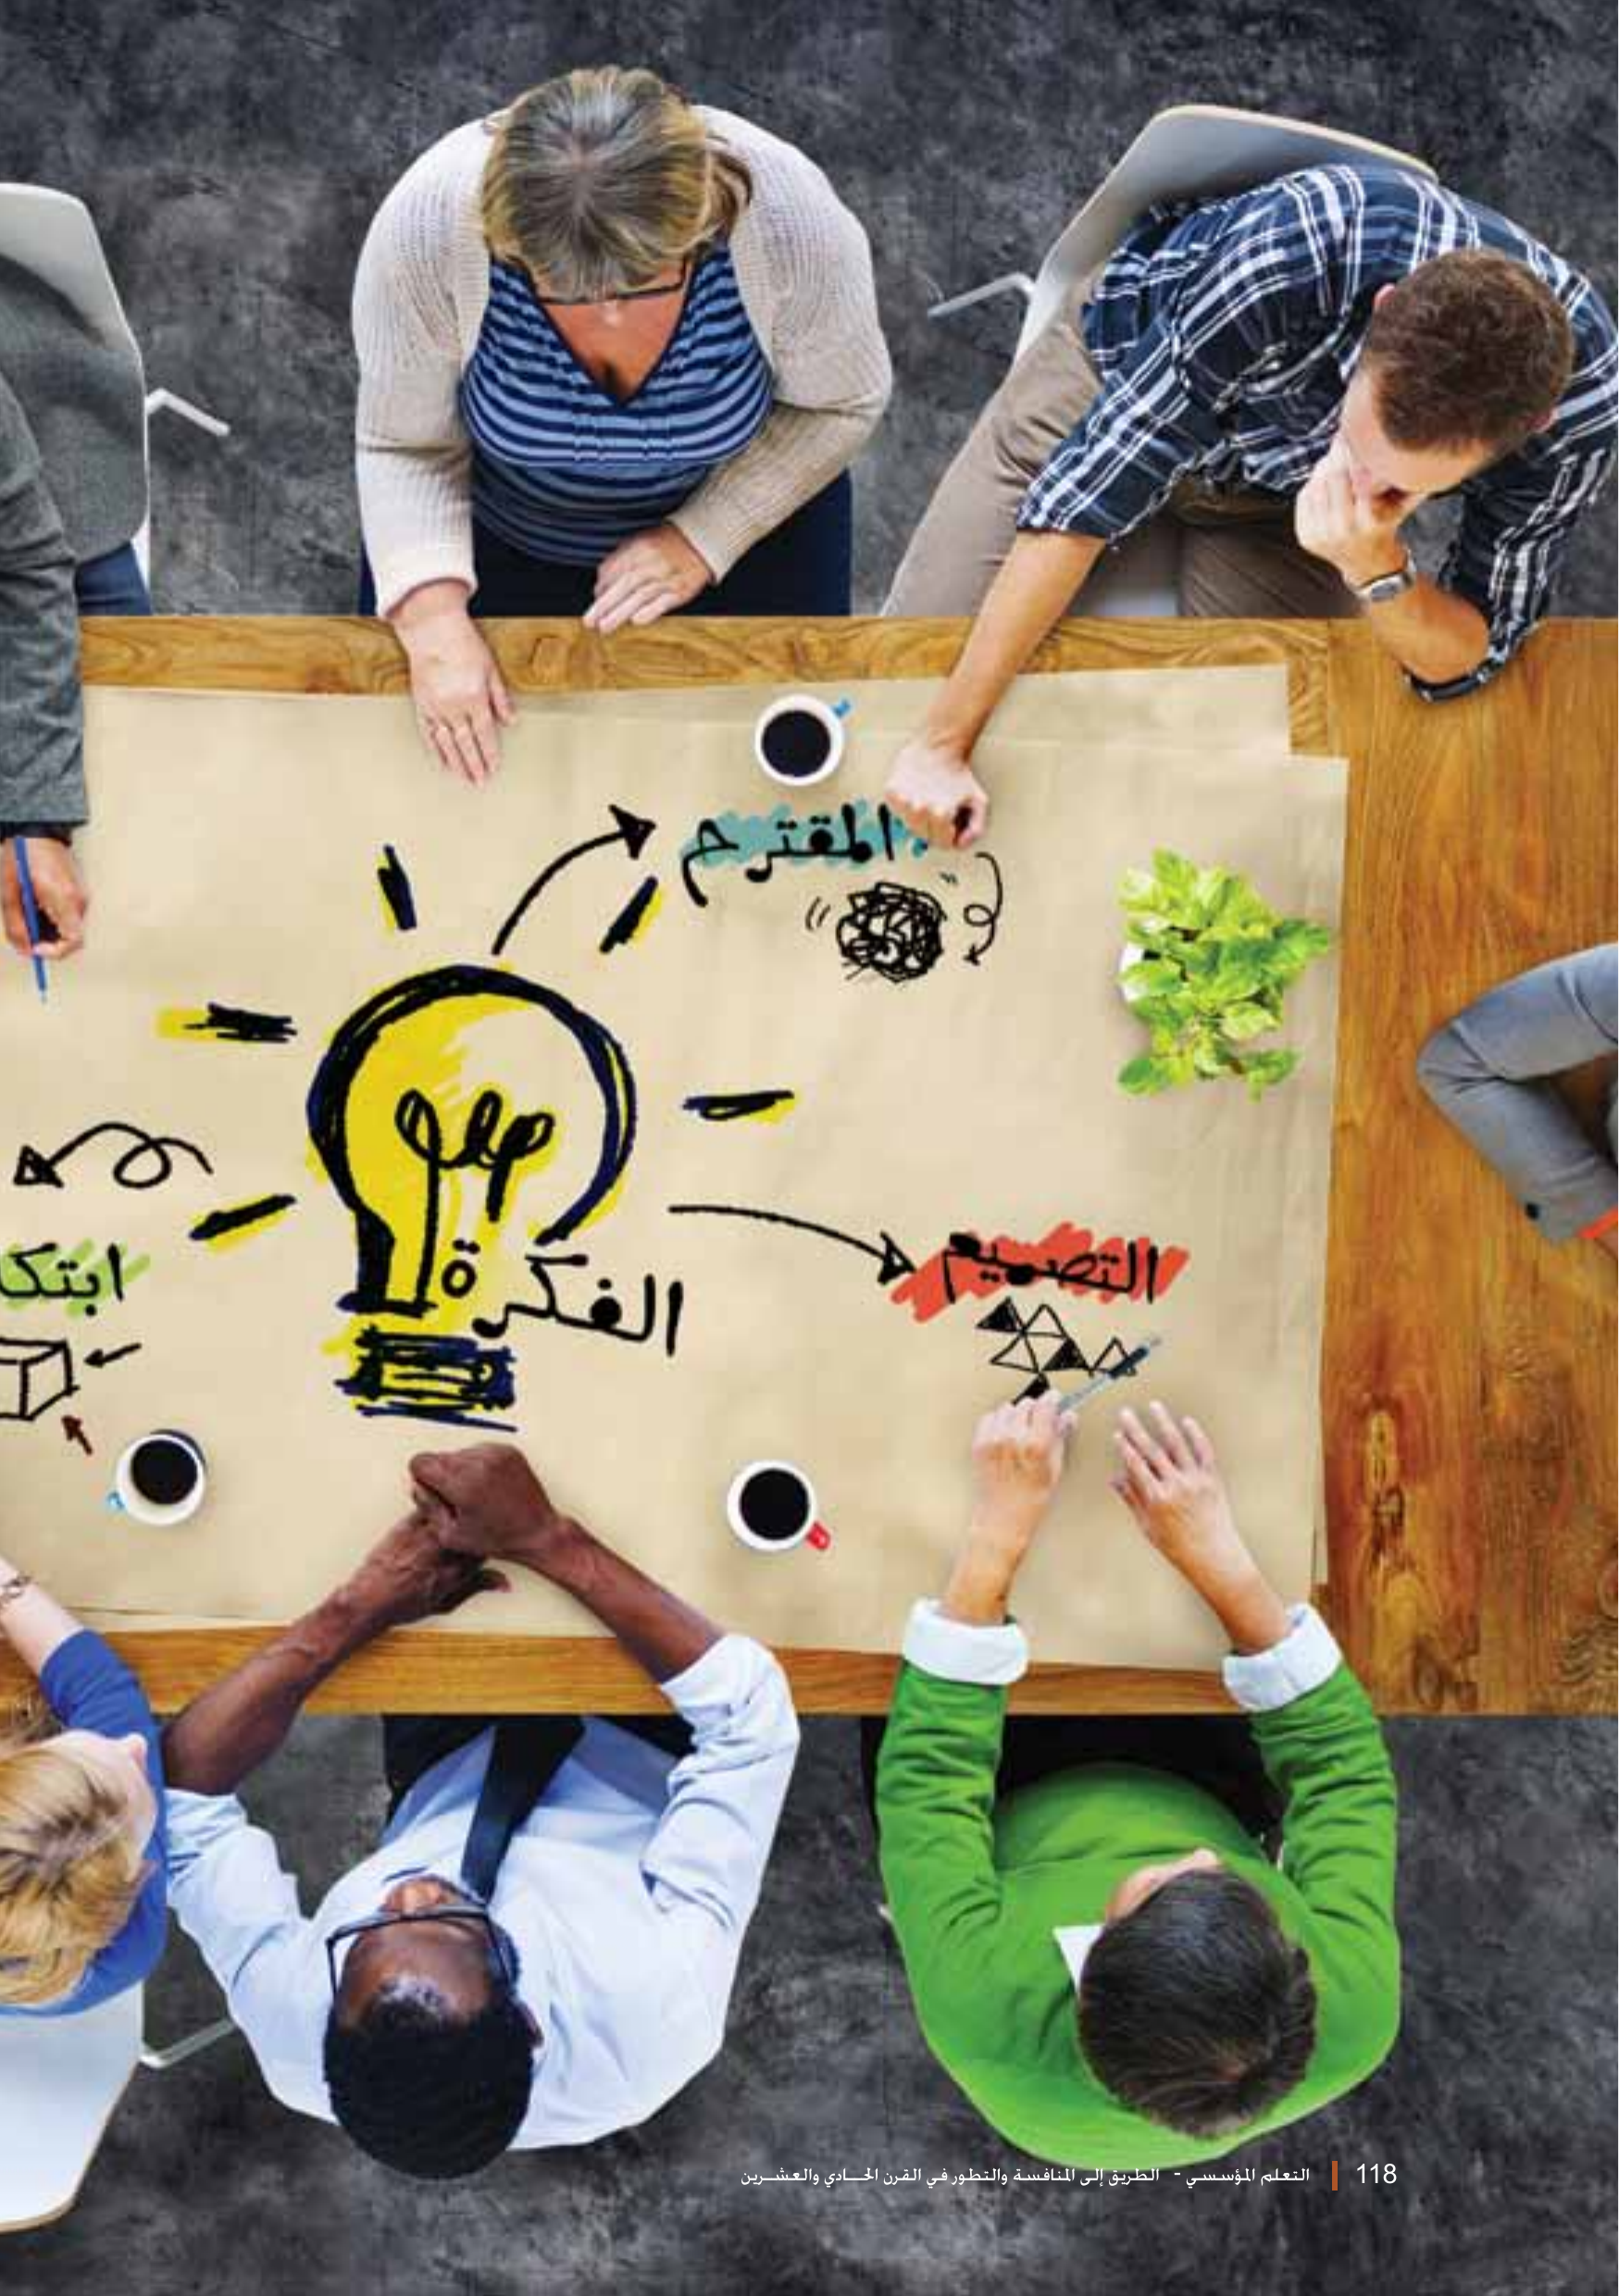 المقترح
التصميم
الفكرة
ابتكا
118 | التعلم المؤسسي - الطريق إلى المنافسة والتطور في القرن الحادي والعشرين